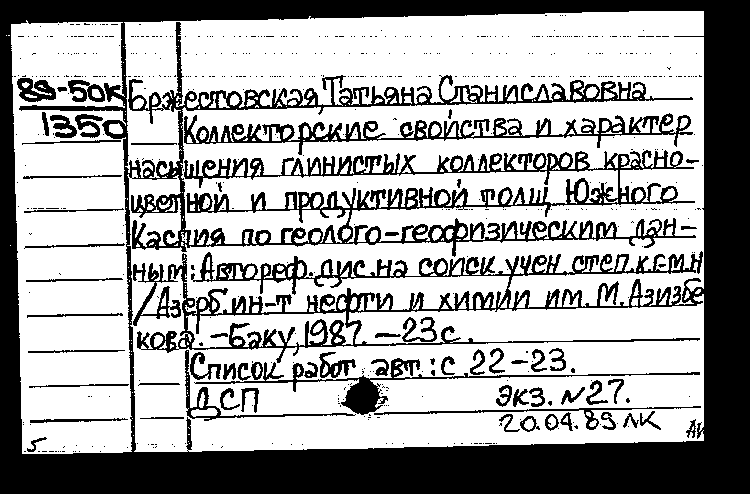 89-50К Бржестовская, Татьяна Станиславовна.
1350 Коллекторские свойства и характер
насыщения глинистых коллекторов красно-
цветной и продуктивной толщ Южного
Каспия по геолого-геофизическим дан-
ным: Автореф. дис. на соиск. учен. степ. к.г.м.н
/ Азерб. ин-т нефти и химии им. М. Азизбе
кова. - Баку, 1987. - 23 с.
Список работ авт.: с. 22-23.
ДСП экз. N 27.
20.04.89 ЛК
5